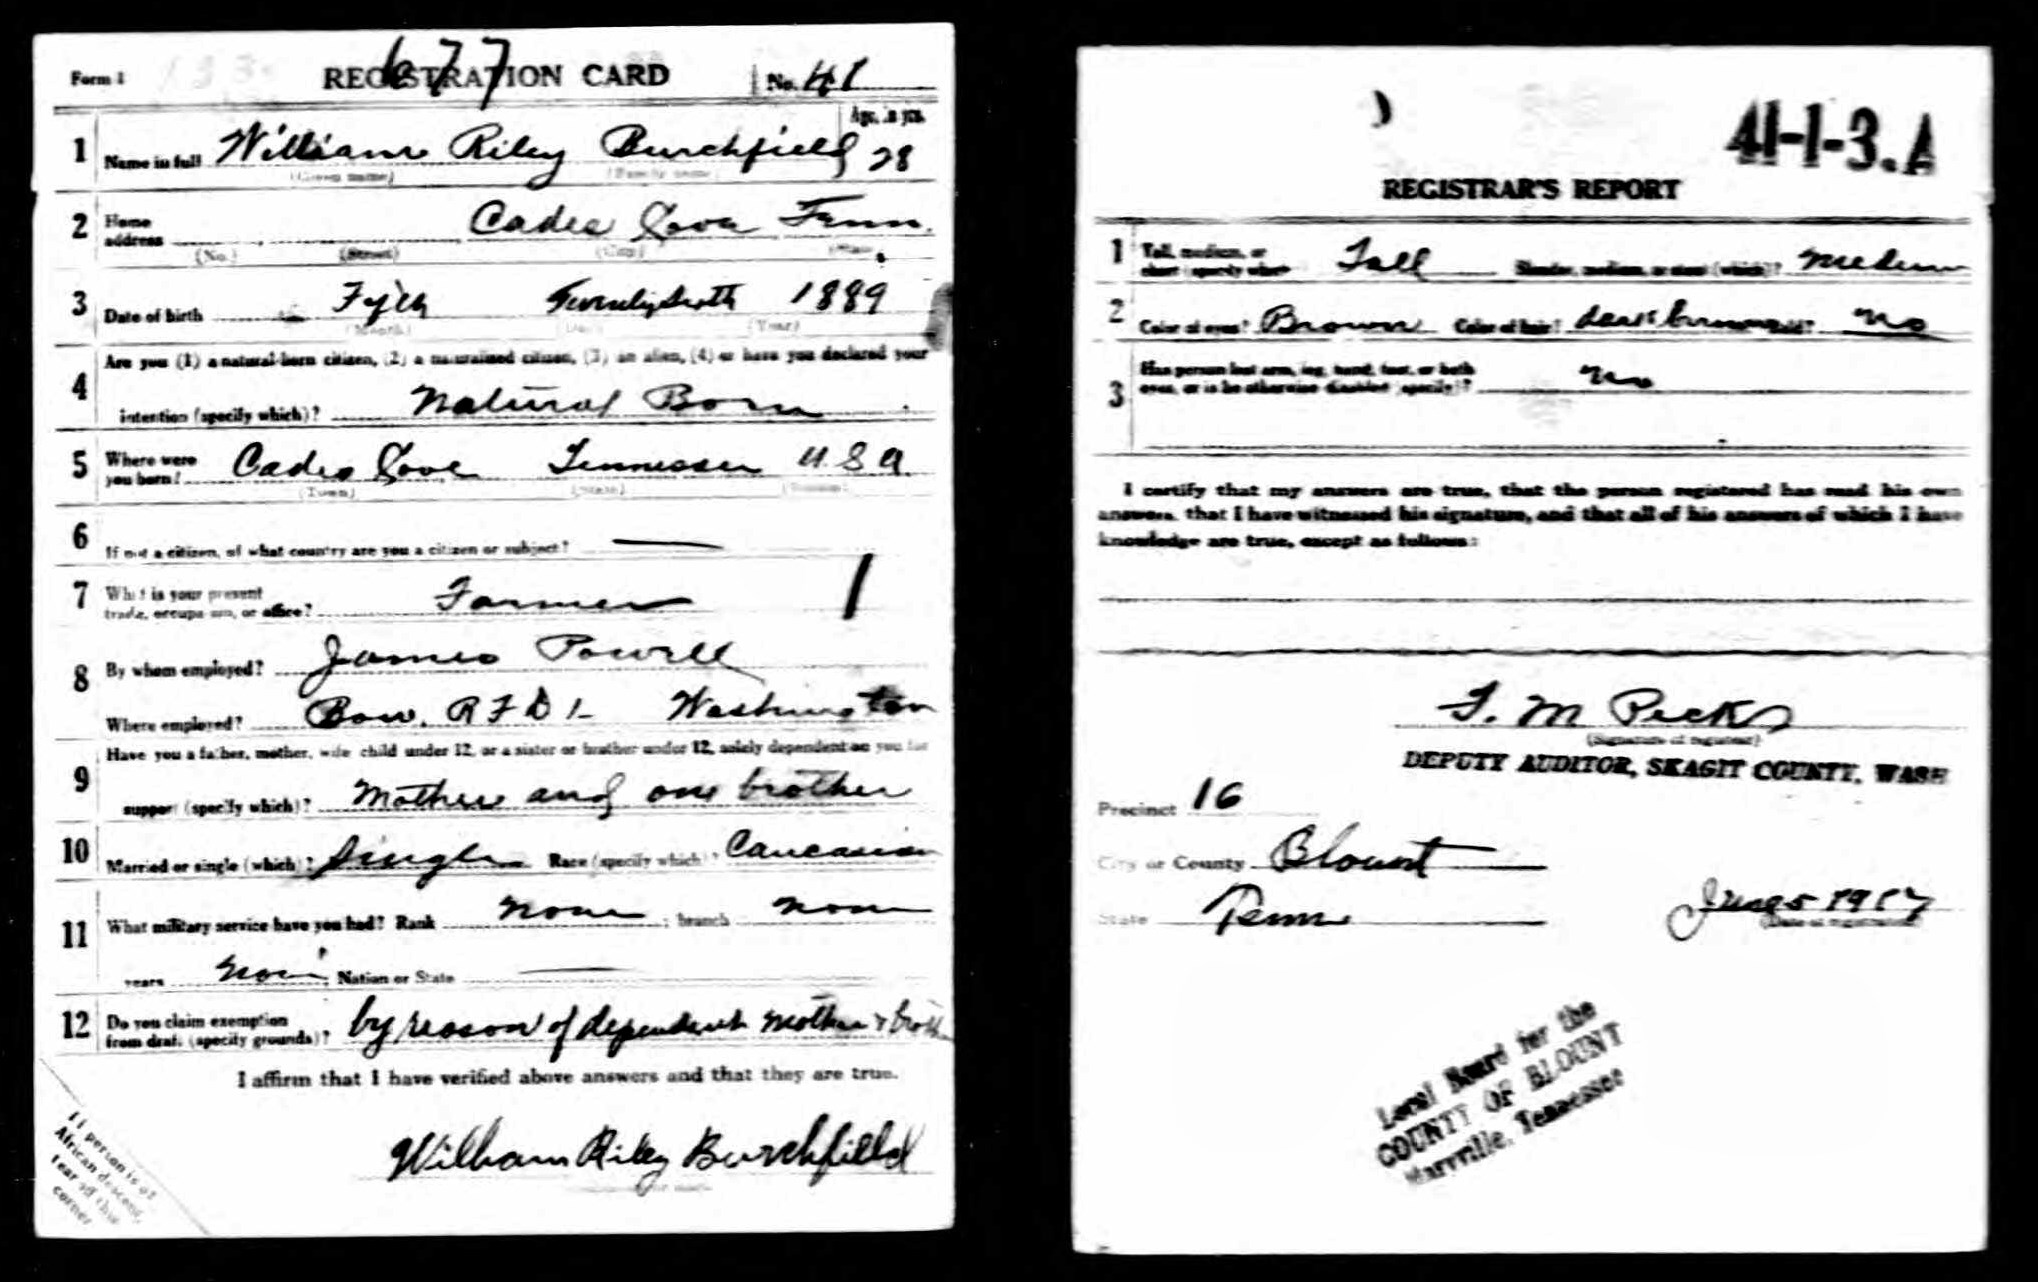 Form 1 REGISTRATION CARD No. 41
677
Age, in yrs.
1 Name in full William Riley Burchfield 28
(Given name) (Family name)
2 Home address Cades Cove Tenn.
(No.) (Street) (City) (State)
3 Date of birth 1889
(Month) (Day) (Year)
4 Are you (1) a natural-born citizen, (2) a naturalized citizen, (3) an alien, (4) or have you declared your
intention (specify which)? Natural Born
5 Where were you born? Cades Cove Tennessee U.S.A.
(Town) (State) (Nation)
6 If not a citizen, of what country are you a citizen or subject?
7 What is your present
trade, occupation, or office? Farmer 1
8 By whom employed? James Powell
Where employed? Bow. RFD 1 Washington
9 Have you a father, mother, wife child under 12, or a sister or brother under 12, solely dependent on you for
support (specify which)? Mother and one brother
10 Married or single (which)? Single Race (specify which)? Caucasian
11 What military service have you had? Rank none ; branch none
years none Nation or State
12 Do you claim exemption
from draft (specify grounds)? by reason of dependent mother & broth
I affirm that I have verified above answers and that they are true.
William Riley Burchfield
If person is of
African descent,
tear off this
corner
41-1-3.A
REGISTRAR'S REPORT
1 Tall, medium, or
short (specify which)? Tall Slender, medium, or stout (which)? Medium
2 Color of eyes? Brown Color of hair? dark brown Bald? No
3 Has person lost arm, leg, hand, foot, or both
eyes, or is he otherwise disabled (specify)? No
I certify that my answers are true, that the person registered has read his own
answers, that I have witnessed his signature, and that all of his answers of which I have
knowledge are true, except as follows:
(Signature of registrar)
DEPUTY AUDITOR, SKAGIT COUNTY, WASH
Precinct 16
City or County Blount
State Tenn June 5 1917
(Date of registration)
Local Board for the
COUNTY OF BLOUNT
Maryville, Tennessee